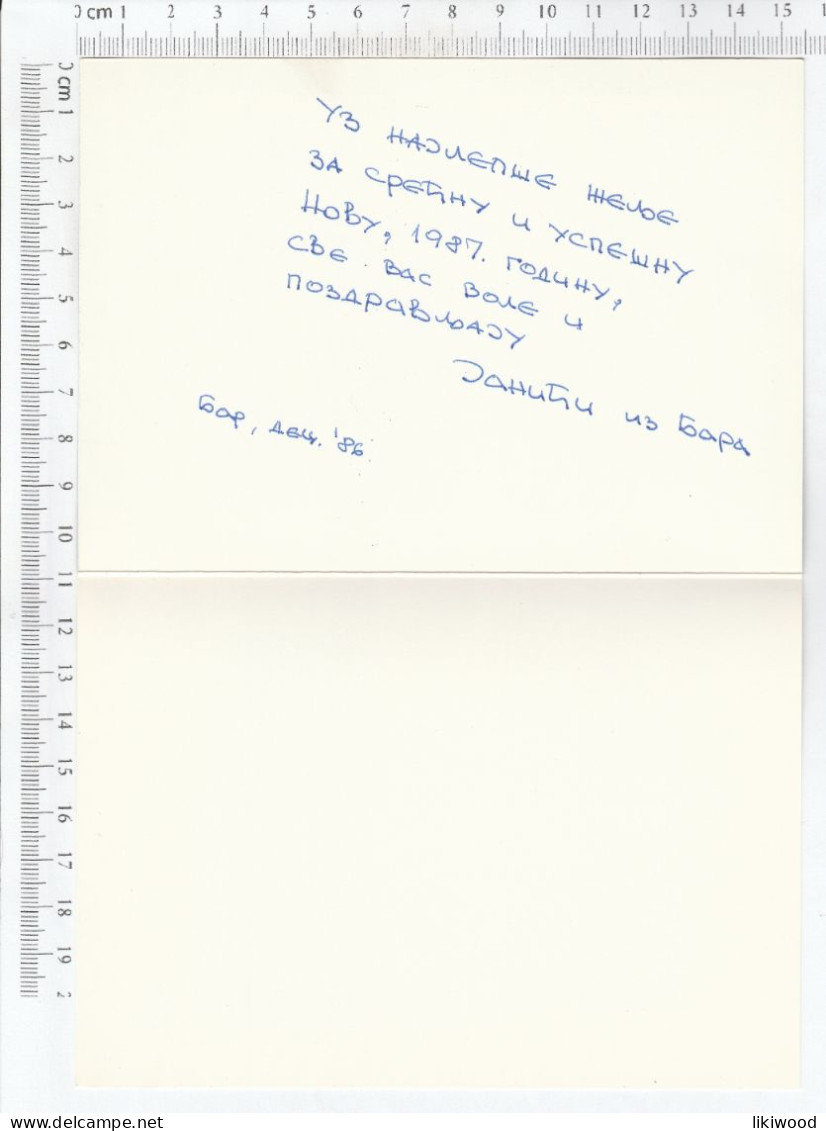 0 cm 1 2 3 4 5 6 7 8 9 10 11 12 13 14 15
0 cm 1 2 3 4 5 6 7 8 9 10 11 12 13 14 15 16 17 18 19 2
Уз најлепше жеље
за срећну и успешну
Нову, 1987. годину,
све вас воле и
поздрављају
Јанићи из Бара
Бар, дец. '86.
likiwood